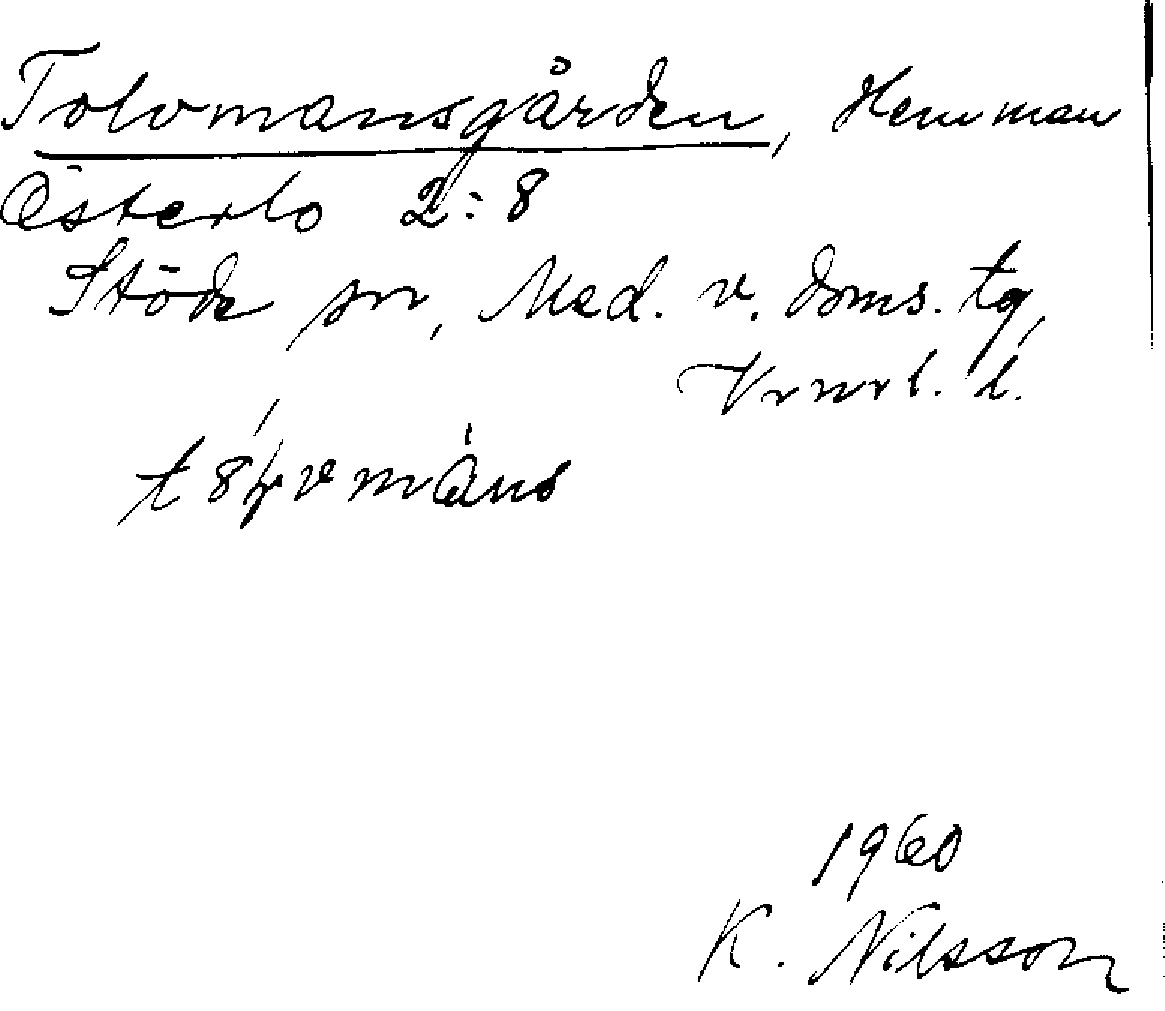 Tolvmansgården, Hemman
Österlo 2:8
Stöde sn, Med. v. doms. tg,
Vrnrl. l.
1960
K. Nilsson